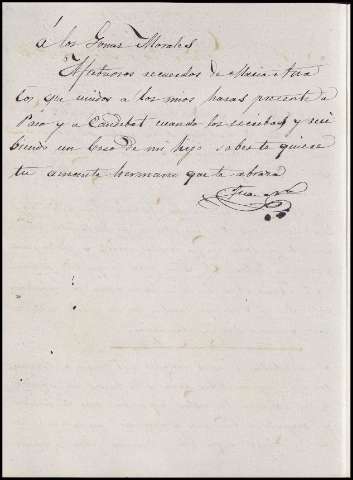 á los Gomez Morales
Afectuosos recuerdos de Maria Ana
los que unidos a los mios haras presente a
Paco y a Candebat cuando los recibas y reci
biendo un beso de mi hijo sabes te quiere
tu amante hermano que te abraza
Juan